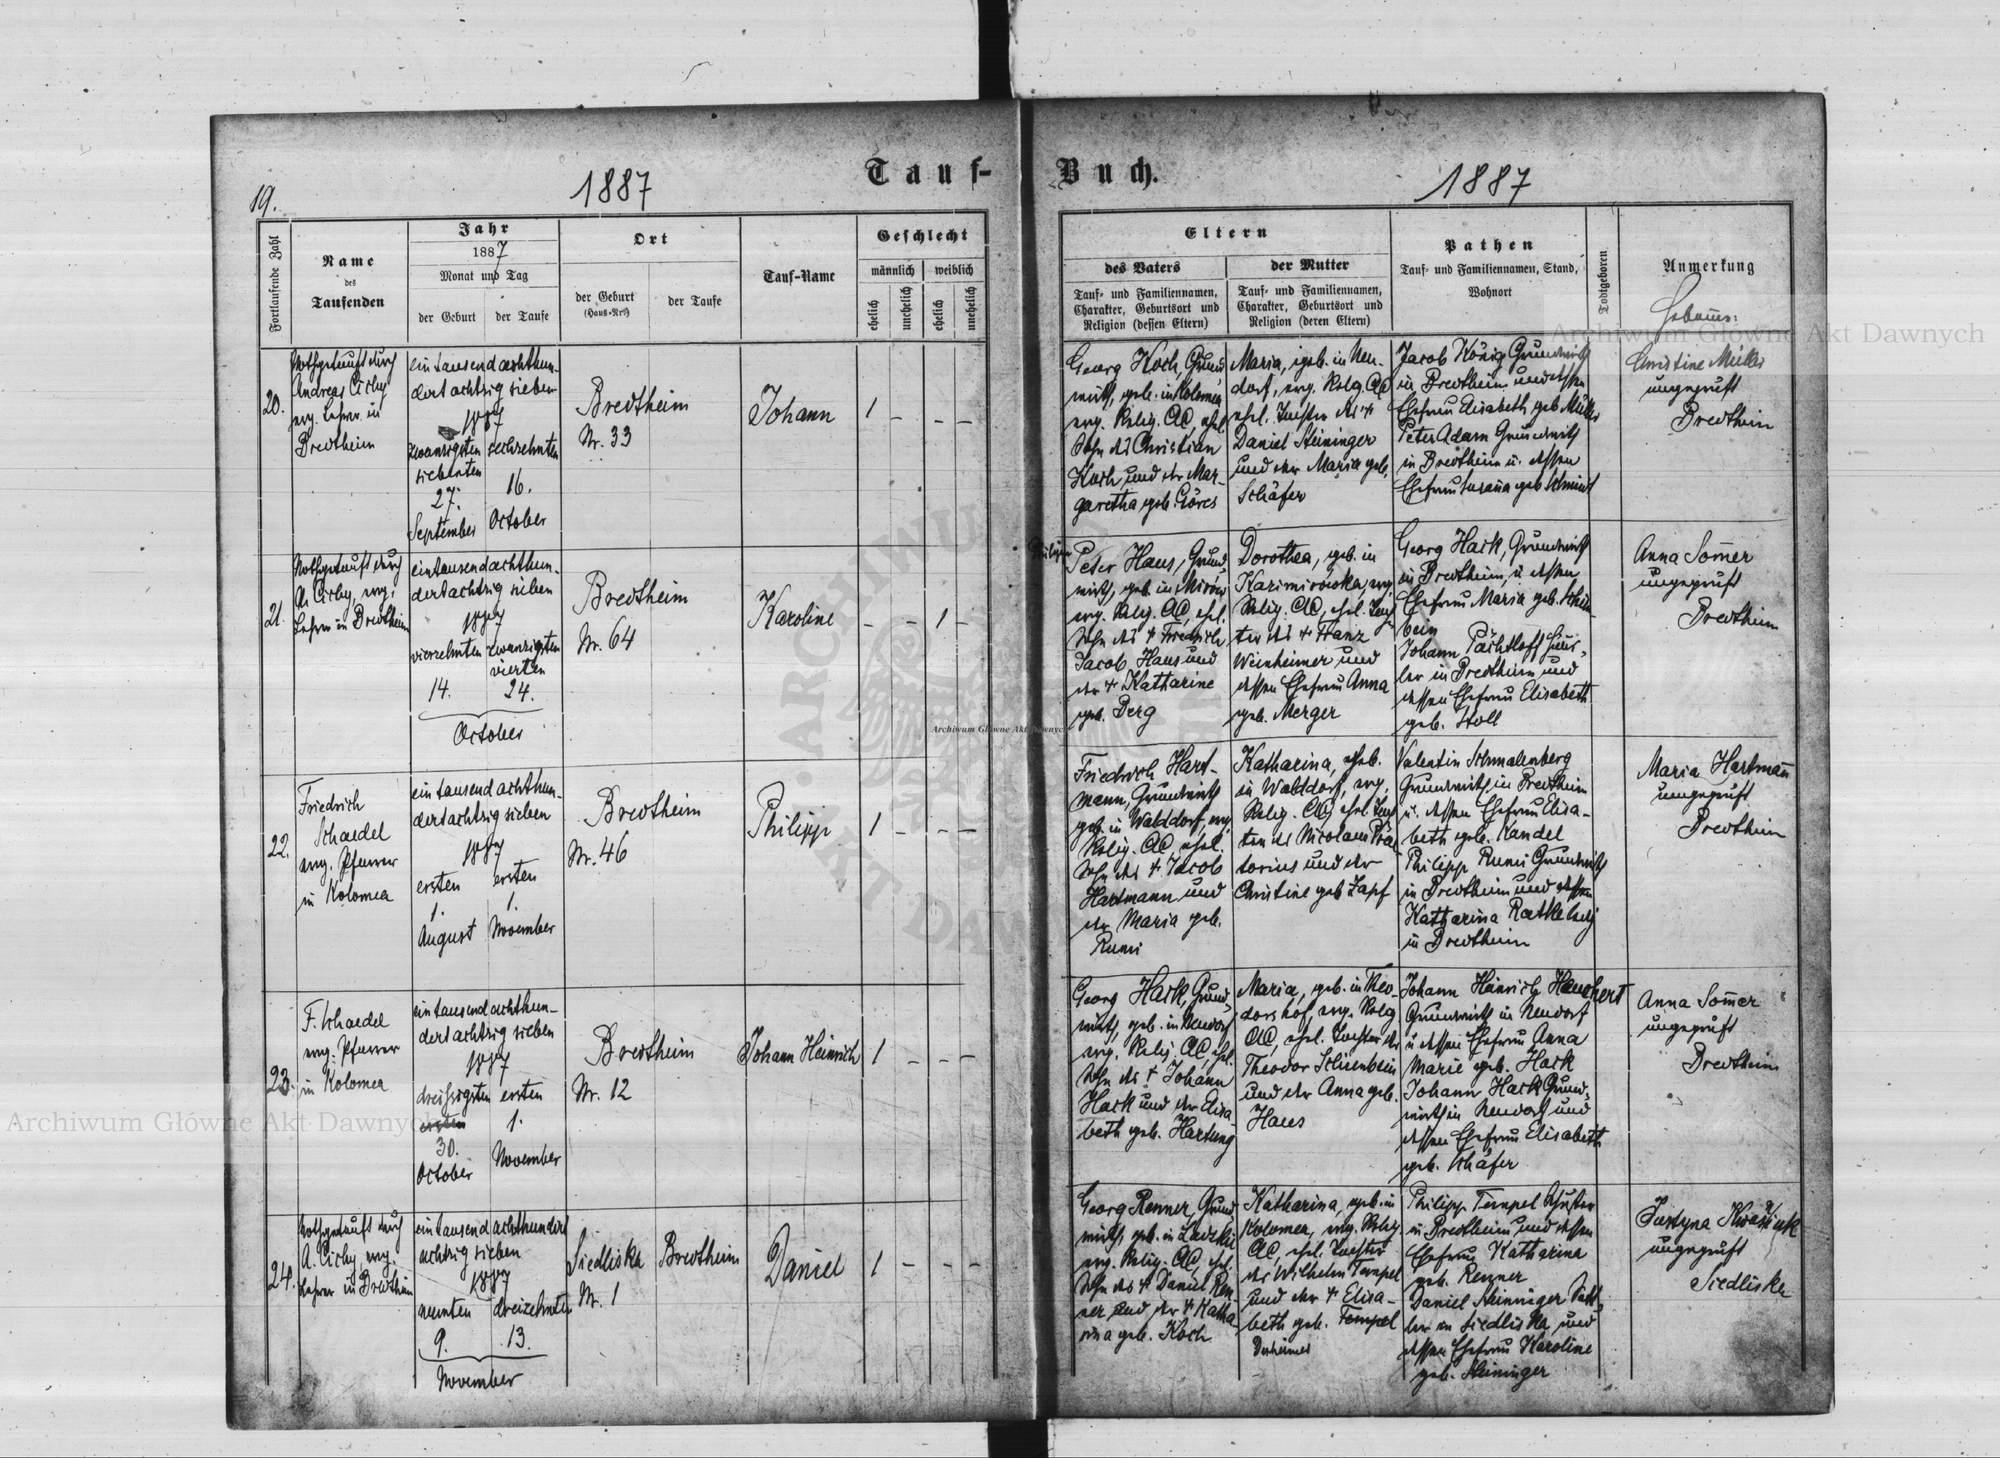 Tauf-
Buch.
19.
1887
1887
Fortlaufende Zahl
Name
des
Taufenden
Jahr
1887
Monat und Tag
der Geburt
der Taufe
Ort
der Geburt
(Haus-Nrº)
der Taufe
Tauf-Name
Geschlecht
männlich
weiblich
ehelich
unehelich
ehelich
unehelich
Eltern
des Vaters
Tauf- und Familiennamen,
Charakter, Geburtsort und
Religion (dessen Eltern)
der Mutter
Tauf- und Familiennamen,
Charakter, Geburtsort und
Religion (deren Eltern)
Pathen
Tauf- und Familiennamen, Stand,
Wohnort
Todtgeboren
Anmerkung
Hebamme:
20.
Nothgetauft durch
Andreas Cirby
evg. Lehrer in
Bredtheim
eintausendachthun-
dertachtzig sieben
1887
zwanzigsten
siebenten
27.
September
sechzehnten
16.
October
Bredtheim
Nr. 33
Johann
1 - - -
Georg Koch, Grund-
wirth, geb. in Kolomea
evg. Relig. AC, ehel.
Sohn des Christian
Koch und der Mar-
garetha geb. Göres
Maria, geb. in Neu-
dorf, evg. Relig. AC
ehel. Tochter des +
Daniel Steininger
und der Maria geb.
Schäfer
Jacob König Grundwirth
in Bredtheim und dessen
Ehefrau Elisabeth geb Müller
Peter Adam Grundwirth
in Bredtheim u. dessen
Ehefrau Susana geb Schmidt
Christine Müller
ungeprüft
Bredtheim
21.
Nothgetauft durch
A. Cirby, evg.
Lehrer in Bredtheim
eintausendachthun-
dertachtzig sieben
1887
vierzehnten
14.
zwanzigsten
vierten
24.
October
Bredtheim
Nr. 64
Karoline
- - 1 -
Peter Haus, Grund-
wirth, geb. in
evg. Relig. AC, ehel.
Sohn des + Friedrich
Jacob Haus und
der + Katharine
geb. Berg
Dorothea, geb. in
Kazimirowka, evg.
Relig. AC, ehel. Toch-
ter des + Franz
Weinheimer und
dessen Ehefrau Anna
geb. Merger
Georg Hark, Grundwirth
in Bredtheim, u dessen
Ehefrau Maria geb. Schien-
bein
Johann Pächtloff Häus-
ler in Bredtheim und
dessen Ehefrau Elisabeth
geb. Stoll
Anna Som̄er
ungeprüft
Bredtheim
22.
Friedrich
Schaedel
evg. Pfarrer
in Kolomea
eintausendachthun-
dertachtzig sieben
1887
ersten
1.
August
ersten
1.
November
Bredtheim
Nr. 46
Philipp
1 - - -
Friedrich Hart-
mann, Grundwirth
geb. in Walddorf, evg
Relig. AC, ehel.
Sohn des + Jacob
Hartmann und
der Maria geb.
Rumi
Katharina, geb.
in Walddorf, evg.
Relig. AC, ehel. Toch
ter des Nicolaus Prä-
torius und der
Christine geb Zapf
Valentin Schmalenberg
Grundwirth in Bredtheim
u. dessen Ehefrau Elisa-
beth geb. Kandel
Philipp Rumi Grundwirth
in Bredtheim und dessen
Katharina
in Bredtheim
Maria Hartman̄
ungeprüft
Bredtheim
23.
F. Schaedel
evg. Pfarrer
in Kolomea
eintausendachthun-
dertachtzig sieben
1887
dreißigsten
ersten
30.
October
ersten
1.
November
Bredtheim
Nr. 12
Johann Heinrich
1 - - -
Georg Hark, Grund-
wirth, geb. in Neudorf
evg. Relig. AC, ehel.
Sohn des + Johann
Hark und der Elisa-
beth geb. Hartung
Maria, geb. in Theo-
dorshof, evg. Relig
AC, ehel. Tochter des
Theodor Schienbein
und der Anna geb.
Haus
Johann Heinrich
Grundwirth in Neudorf
u dessen Ehefrau Anna
Marie geb. Hark
Johann Hark Grund-
wirth in Neudorf und
dessen Ehefrau Elisabeth
geb. Schäfer
Anna Som̄er
ungeprüft
Bredtheim
24.
Nothgetauft durch
A. Cirby, evg.
Lehrer in Bredtheim
eintausendachthundert
achtzig sieben
1887
neunten
9.
dreizehnten
13.
November
Siedliska
Nr. 1
Bredtheim
Daniel
1 - - -
Georg Renner, Grund
wirth, geb. in
evg. Relig. AC, ehel.
Sohn des + Daniel Ren-
ner und der + Katha-
rina geb. Koch
Katharina, geb. in
Kolomea, evg. Relig
AC, ehel. Tochter
des Wilhelm Tempel
und der + Elisa-
beth geb. Tempel
Philipp Tempel Schuster
in Bredtheim und dessen
Ehefrau Katharina
geb. Renner
Daniel Steininger
in Siedliska und
dessen Ehefrau Karoline
geb. Steininger
Justyna
ungeprüft
Siedliska
Archiwum Główne Akt Dawnych
Archiwum Główne Akt Dawnych
Archiwum Główne Akt Dawnych